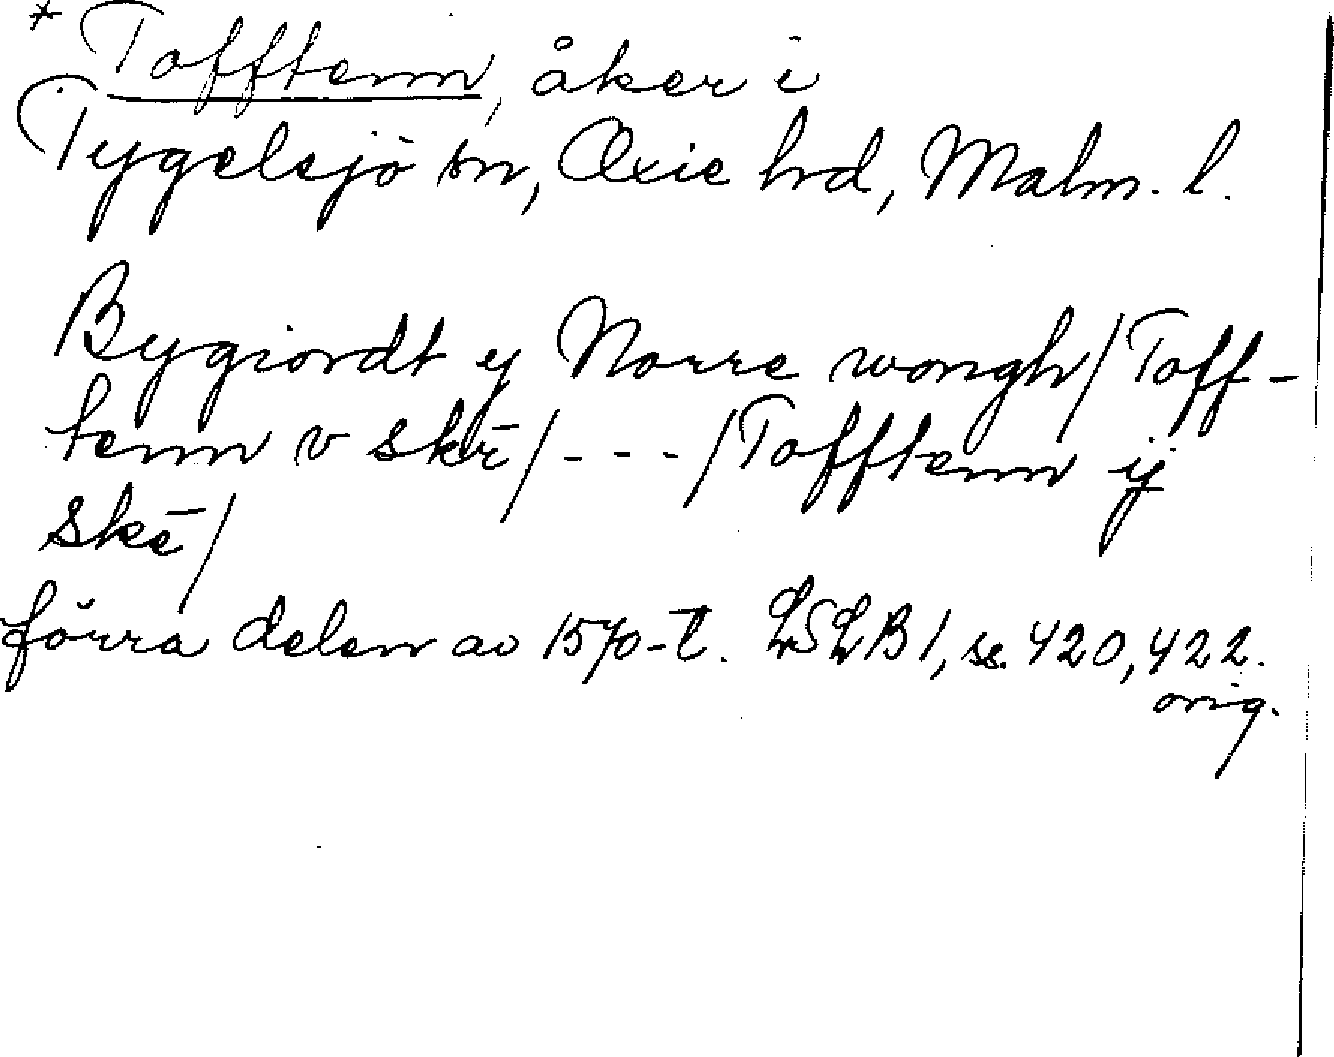 * Tofftenn, åker i
Tygelsjö sn, Oxie hrd, Malm. l.
Bygiordt y Norre wongh/Toff-
tenn v skē/---/Tofftenn ij
skē/
förra delen av 1570-t. LSLB1, ss. 420, 422.
orig.